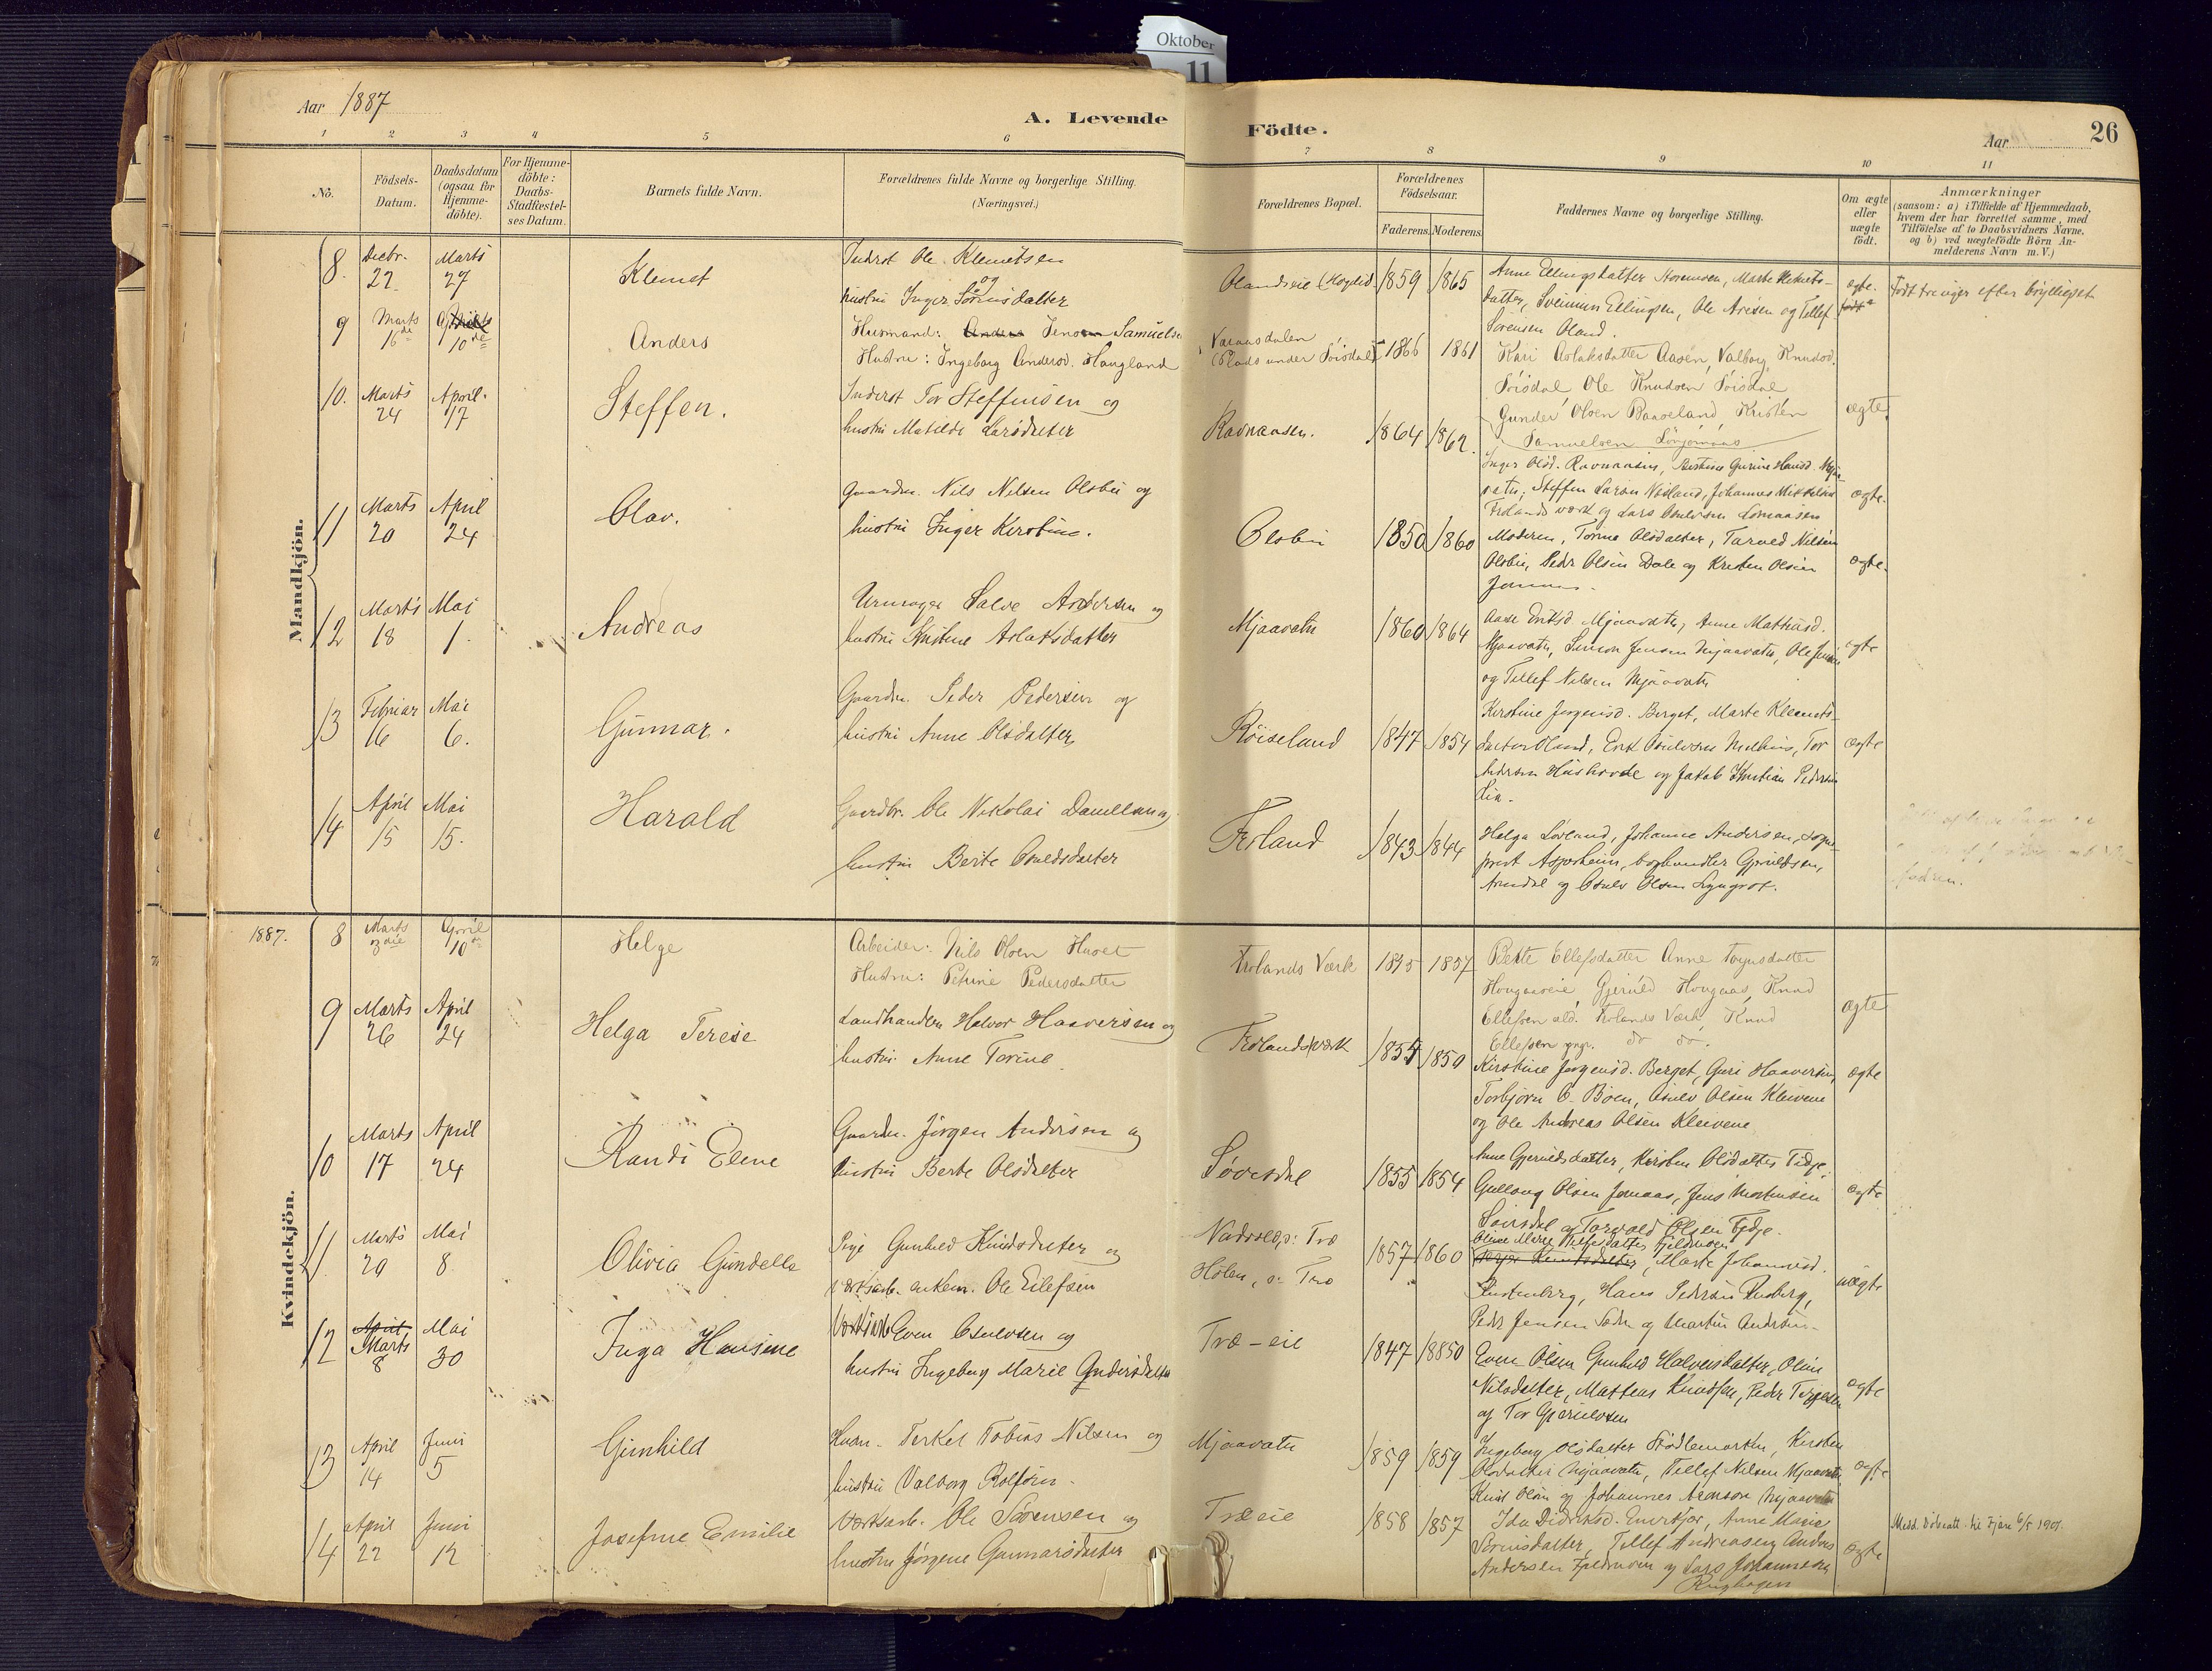 Oktober
11
Aar 1887
A. Levende
Födte.
Aar
26
1
2
3
4
5
6
7
8
9
10
11
No.
Födsels-
Datum.
Daabsdatum
(ogsaa for
Hjemme-
döbte).
For Hjemme-
döbte:
Daabs-
Stadfæstel-
ses Datum.
Barnets fulde Navn.
Forældrenes fulde Navne og borgerlige Stilling.
(Næringsvei.)
Forældrenes Bopæl.
Forældrenes
Födselsaar.
Faderens.
Moderens.
Faddernes Navne og borgerlige Stilling.
Om ægte
eller
uægte
födt.
Anmærkninger
(saasom: a) i Tilfælde af Hjemmedaab,
hvem der har forrettet samme, med
Tilföielse af to Daabsvidners Navne.
og b) ved uægtefödte Börn An-
melderens Navn m. V.)
Mandkjön.
8.
Decbr.
22
Marts
27
Klemet
Inderst Ole Klemetsen
og
hustru Inger Sørensdatter
1859
1865
Anne Ellingsdatter
datter, Sveinun Ellingsen, Ole Aresen og Tellef
Sørensen Oland.
ægte.
født tre uger efter brylluppet
9
Marts
16de
April
10de
Anders
Husmand: Jens Samuelsen
Hustru: Ingeborg Andersd. Haugland
(Plads under Søisdal)
1866
1861
Kari Aslaksdatter Aasen, Valborg Knudsd.
Søisdal Ole Knudsen Søisdal
Gunder Olsen Baaseland, Kristen
Samuelsen
ægte
10.
Marts
24
April
17
Steffen.
Inderst Tor Steffensen og
hustru Matilde Larsdatter
Ravnaasen.
1864
1862.
Inger Olsd. Ravnaasen,
Steffen Larsen
Frolands værk og Lars Osulvsen Lomaasen
ægte.
11
Marts
20
April
24
Olav.
Gaardm. Nils Nilsen Olsbu og
hustru Inger Kirstine.
Olsbu
1850
1860
Moderen, Torine Olsdatter, Tarved Nilsen
Olsbu, Peder Olsen Dale og Kristen Olsen
ægte.
12
Marts
18
Mai
1.
Andreas
Urmager Salve Andersen og
hustru Kristine Aslaksdatter
Mjaavatn
1860
1864
Aase Eriksd. Mjaavatn, Anne Mathisd.
Mjaavatn, Simon Jensen Mjaavatn, Ole Jensen
og Tellef Nilsen Mjaavatn
ægte
13
Februar
16
Mai
6.
Gunnar.
Gaardm. Peder Pedersen og
hustru Anne Olsdatter
Røiseland
1847
1854
Kirstine Jørgensd. Berget, Marte Klemets-
datter Oland, Erik Osulvsen Mølhus, Tor
Andersen Hushovde og Jakob Kristian Pedersen
Lia.
ægte
14
April
15
Mai
15.
Harald
Gaardbr. Ole Nikolai Daniellsen og
hustru Berte Osuldsdatter
Froland
1843
1844
Helga Løvland, Johanne Andersen, sogne-
prest Asperheim, boghandler Gjeruldsen,
Arendal og Osulv Olsen Lyngrot.
Kvindekjön.
1887.
8
Marts
3die
April
10de
Helge
Arbeider: Nils Olsen Huset
Hustru: Petrine Pedersdatter
Frolands Værk
1845
1857
Berte Ellefsdatter Anne Torjusdatter
Hougaaseie Gjeruld Hougaas, Knud
Ellefsen æld. Frolands Værk, Knud
Ellefsen yngr. do do.
ægte
9
Marts
26
April
24
Helga Terese
Landhandler Halvor Haaversen og
hustru Anne Torine
Frolandsværk
1854
1850
Kirstine Jørgensd. Berget, Guri Haaversen,
Torbjørn O. Bøen, Osulv Olsen Kleivene
og Ole Andreas Olsen Kleivene
ægte
10
Marts
17
April
24
Randi Elene
Gaardm. Jørgen Andersen og
hustru Berte Olsdatter
Søvesdal
1855
1854
Anne Gjeruldsdatter, Kirsten Olsdatter Tedje,
Gullaug Olsen Jomaas, Jens Mortensen
Søvisdal og Torvald Olsen Tedje.
ægte
11.
Marts
20
Mai
8.
Olivia Gundelle
Pige Gunhild Knudsdatter og
værksarb. enkem. Ole Eilefsen
Træ
1857
1860
Marte Johannesd.
Rustenberg, Hans Pedersen Rusberg,
Peder Jensen Sødn og Martin Andersen
uægte
12
April
Marts
8
Mai
30
Inga Hansine
Værksarb. Even Osulvsen og
hustru Ingeborg Marie Gundersdatter
Træ-eie
1847
18850
Even Olsen Gunhild Halvorsdatter, Oline
Nilsdatter, Mathias Knudsen, Peder Terjesen
og Tor Gjerulvsen
ægte
13
April
14
Juni
5
Gunhild
Husm. Terkel Tobias Nilsen og
hustru Valborg Rolfsen.
Mjaavatn
1859
1859
Ingeborg Olsdatter Stødlemarken, Kirsten
Olsdatter Mjaavatn, Tellef Nilsen Mjaavatn
Knut Olsen og Johannes Aronsen Mjaavatn
ægte
14
April
22
Juni
12
Josefine Emilie
Værksarb. Ole Sørensen og
hustru Jørgine Gunnarsdatter
Træeie
1858
1857
Ida Didriksd. Enersfjor, Anne Marie
Sørensdatter, Tellef Andreasen, Anders
Andersen Fjeldmoen og Lars Johannesen
Rughagen
ægte
Medd. döbeatt. til Ejere 6/5 1901.